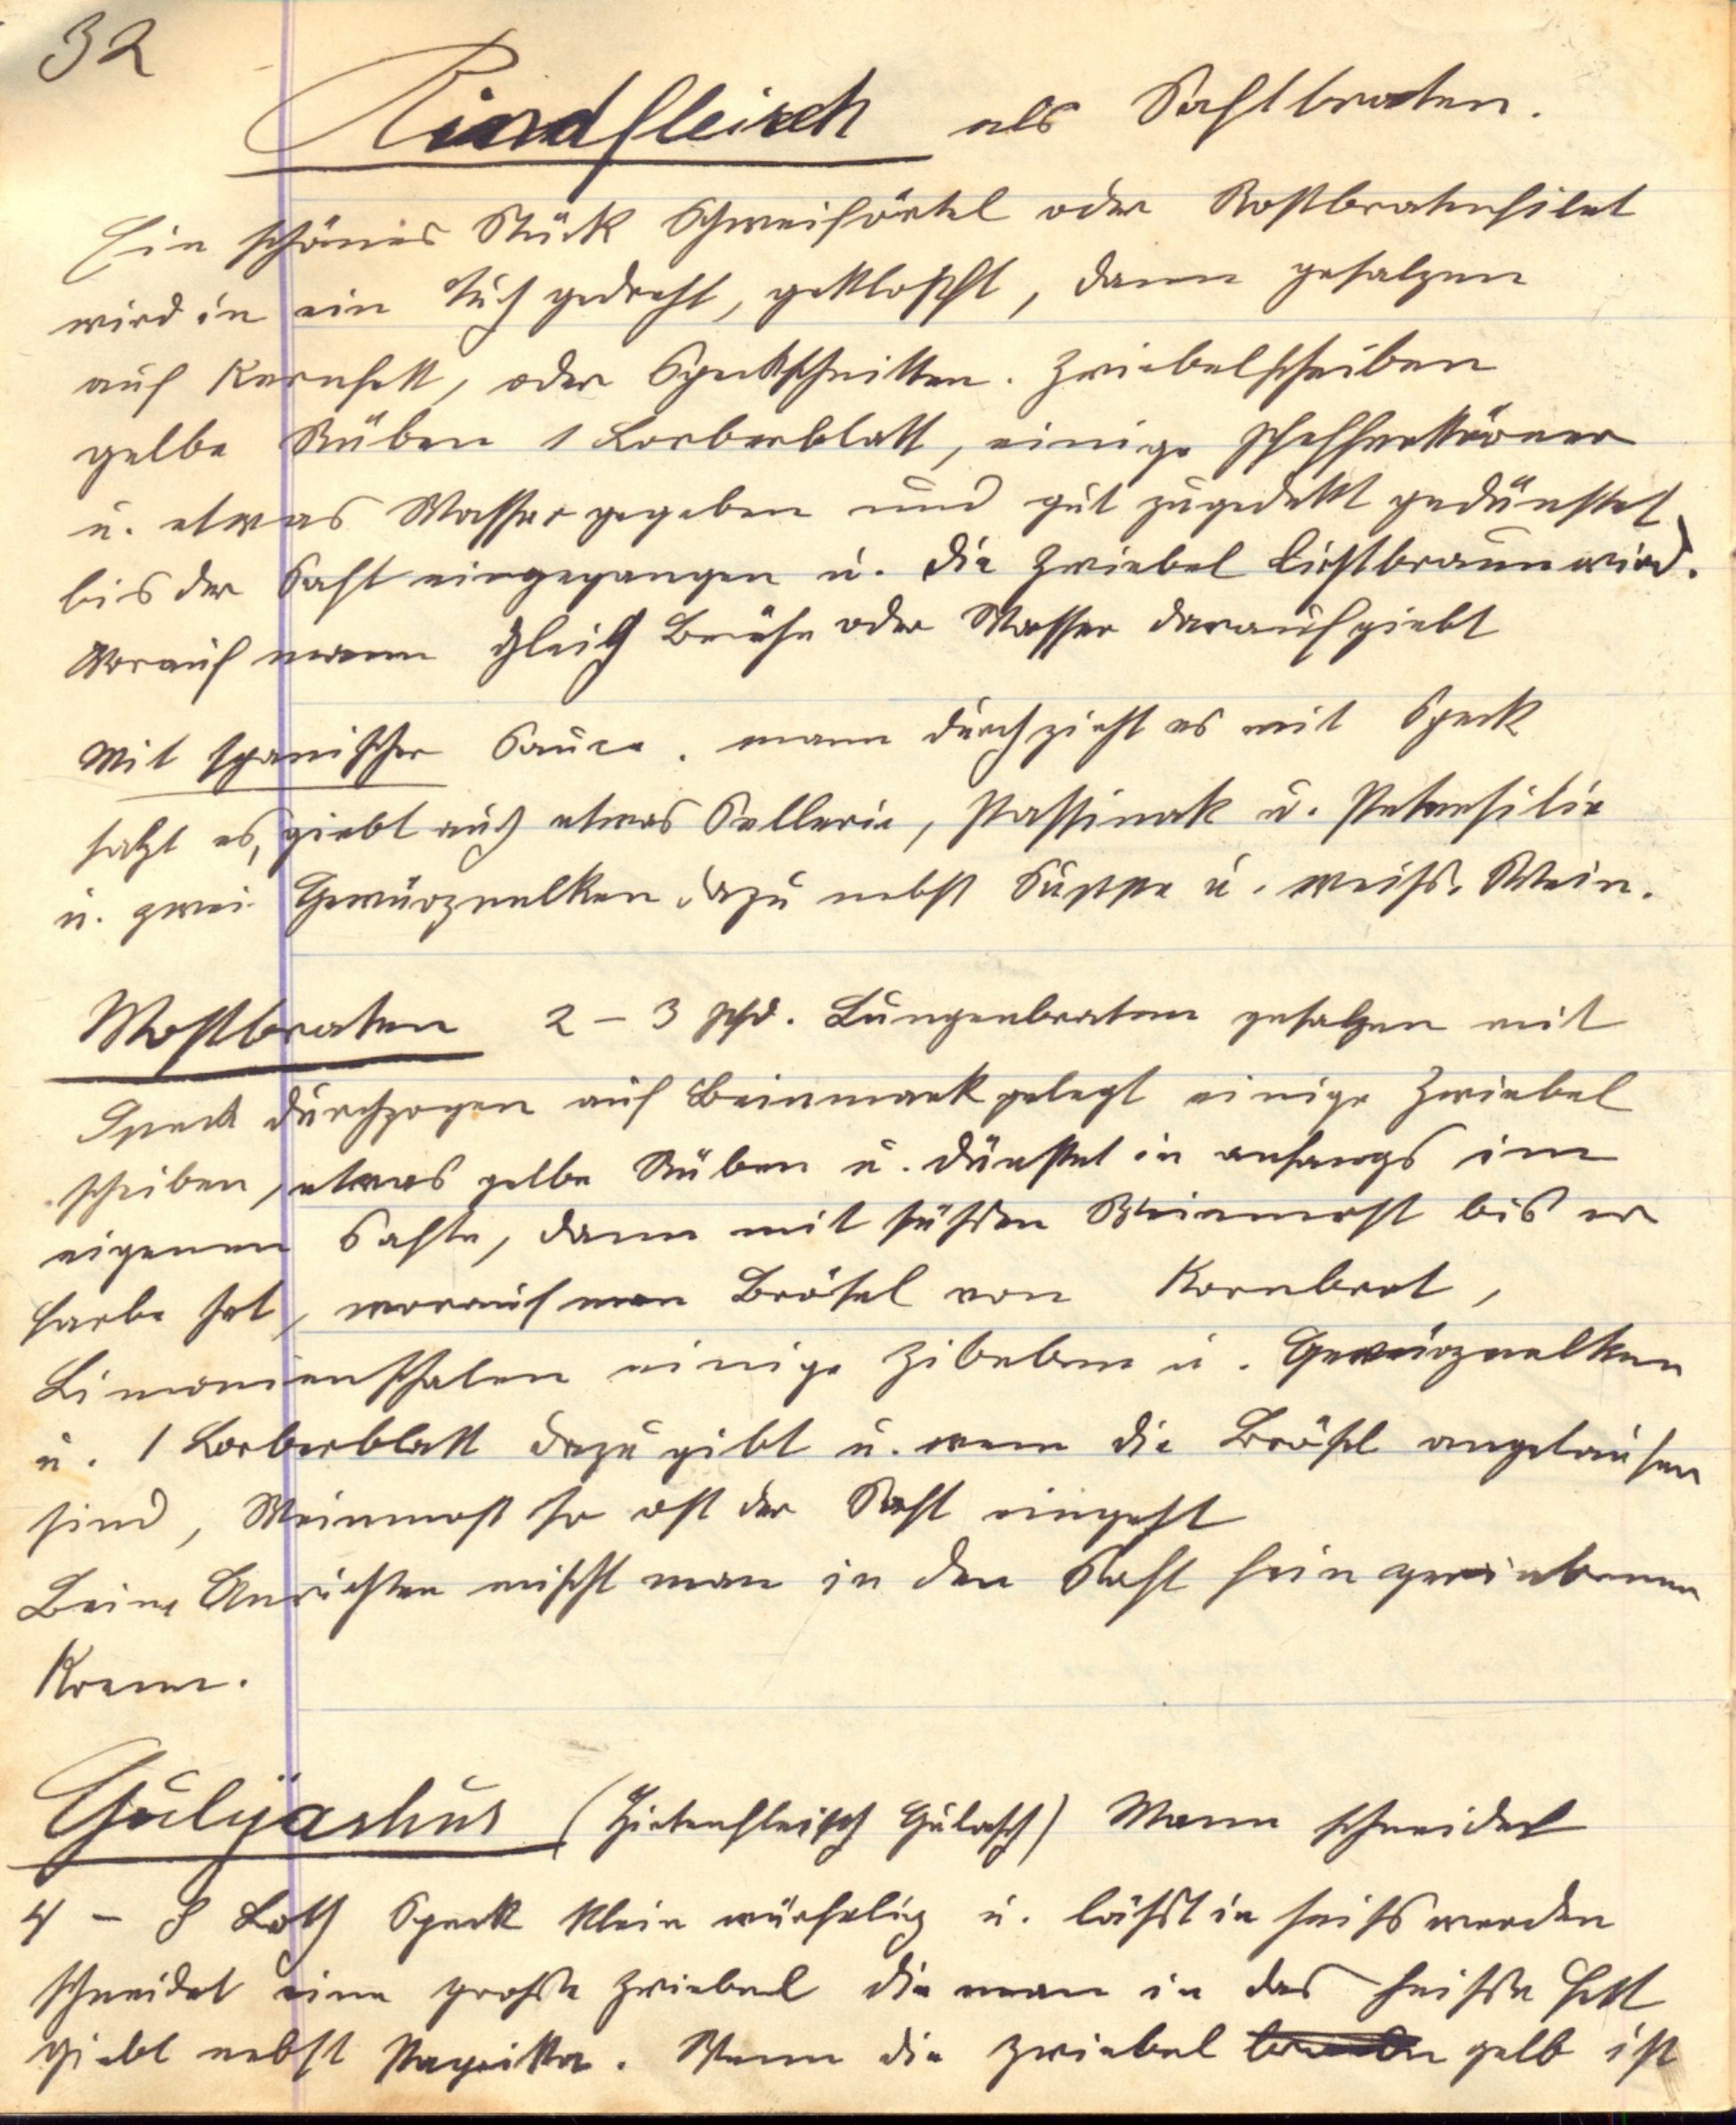 32
Rindfleisch als Saftbraten.
Ein schönes Stück Schweiförtel oder Rostbratenfilet
wird in ein Tuch gedreht, geklopft, dann gesalzen
auf Kernfett, oder Speckschnitten. Zwiebelscheiben
gelbe Rüben 1 Lorberblatt, einige Pfefferkörner
u. etwas Wasser gegeben und gut zugedekt gedünstet,
bis der Saft eingegangen u. die Zwiebel lichtbraun wird.
Worauf mann gleich Brühe oder Wasser darauf giebt
Mit spanischer Sauce. mann durchzieht es mit Speck
salzt es, giebt auch etwas Sellerie, Passinak u. Petersilie
u. zwei Gewürznelken dazu nebst Suppe u. weiß. Wein.
Mostbraten 2 – 3 Pfd. Lungenbraten gesalzen mit
Speck durchzogen auf Beinmark gelegt einige Zwiebel
scheiben, etwas gelbe Rüben u. dünstet in anfangs im
eigenen Safte, dann mit süßen Weinmost bis er
Farbe hat, worauf man Brösel von Kornbrot,
Limonienschalen einige Zibeben u. Gewürznelken
u. 1 Lorberblatt dazu gibt u. wenn die Brösel angelaufen
sind, Weinmost so oft der Saft eingeht
Beim Anrichten mischt man in den Saft fein geriebenen
Krenn.
Gulyashus (Hirtenfleisch Gulasch) Mann schneidet
4 – 8 Loth Speck klein würfelig u. läßt in heiß werden
schneidet eine große Zwiebel die man in das heiße Fett
giebt nebst Paprikka. Wenn die Zwiebel gelb ist